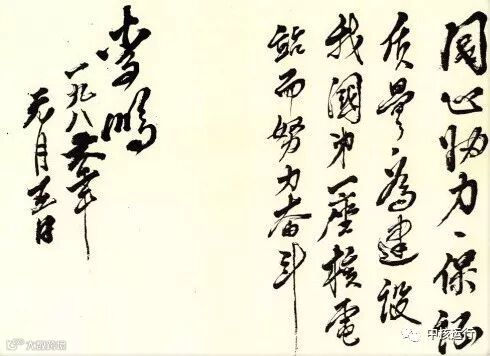 同心协力、保证
质量、為建设
我國第一座核電
站而努力奋斗
李鹏
一九八年
元月五日
大数跨境
中核运行